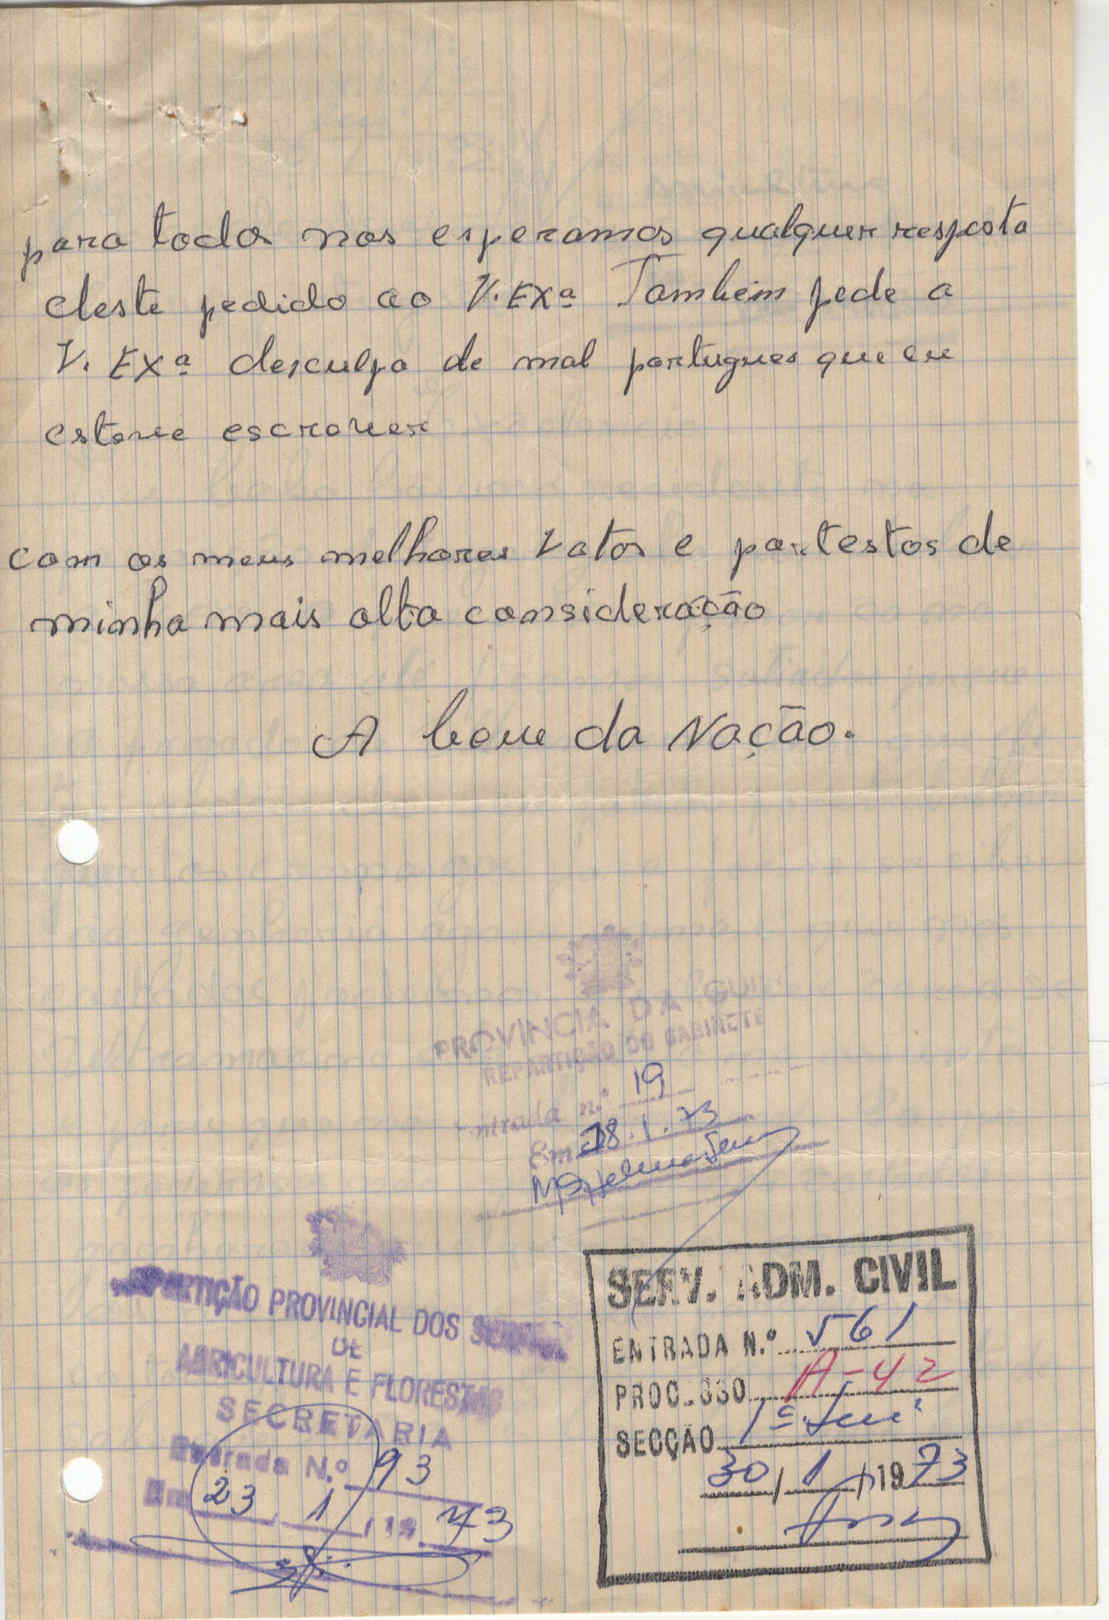 para todos nos esperamos qualquer resposta
deste pedido ao V. EXª Também pede a
V. EXª desculpa de mal portugues que eu
estove escrover
com os meus melhores votos e partestos de
minha mais alta consideração
A bem da Nação.
PROVINCIA DA GUINÉ
REPARTIÇÃO DO GABINETE
Entrada n.º 19
Em 18.1.73
REPARTIÇÃO PROVINCIAL DOS SERVIÇOS
DE
AGRICULTURA E FLORESTAS
SECRETARIA
Entrada N.º 93
Em 23 / 1 / 19 73
SERV. ADM. CIVIL
ENTRADA N.º 561
PROCESSO A-42
SECÇÃO 1ª
30 / 1 / 19 73